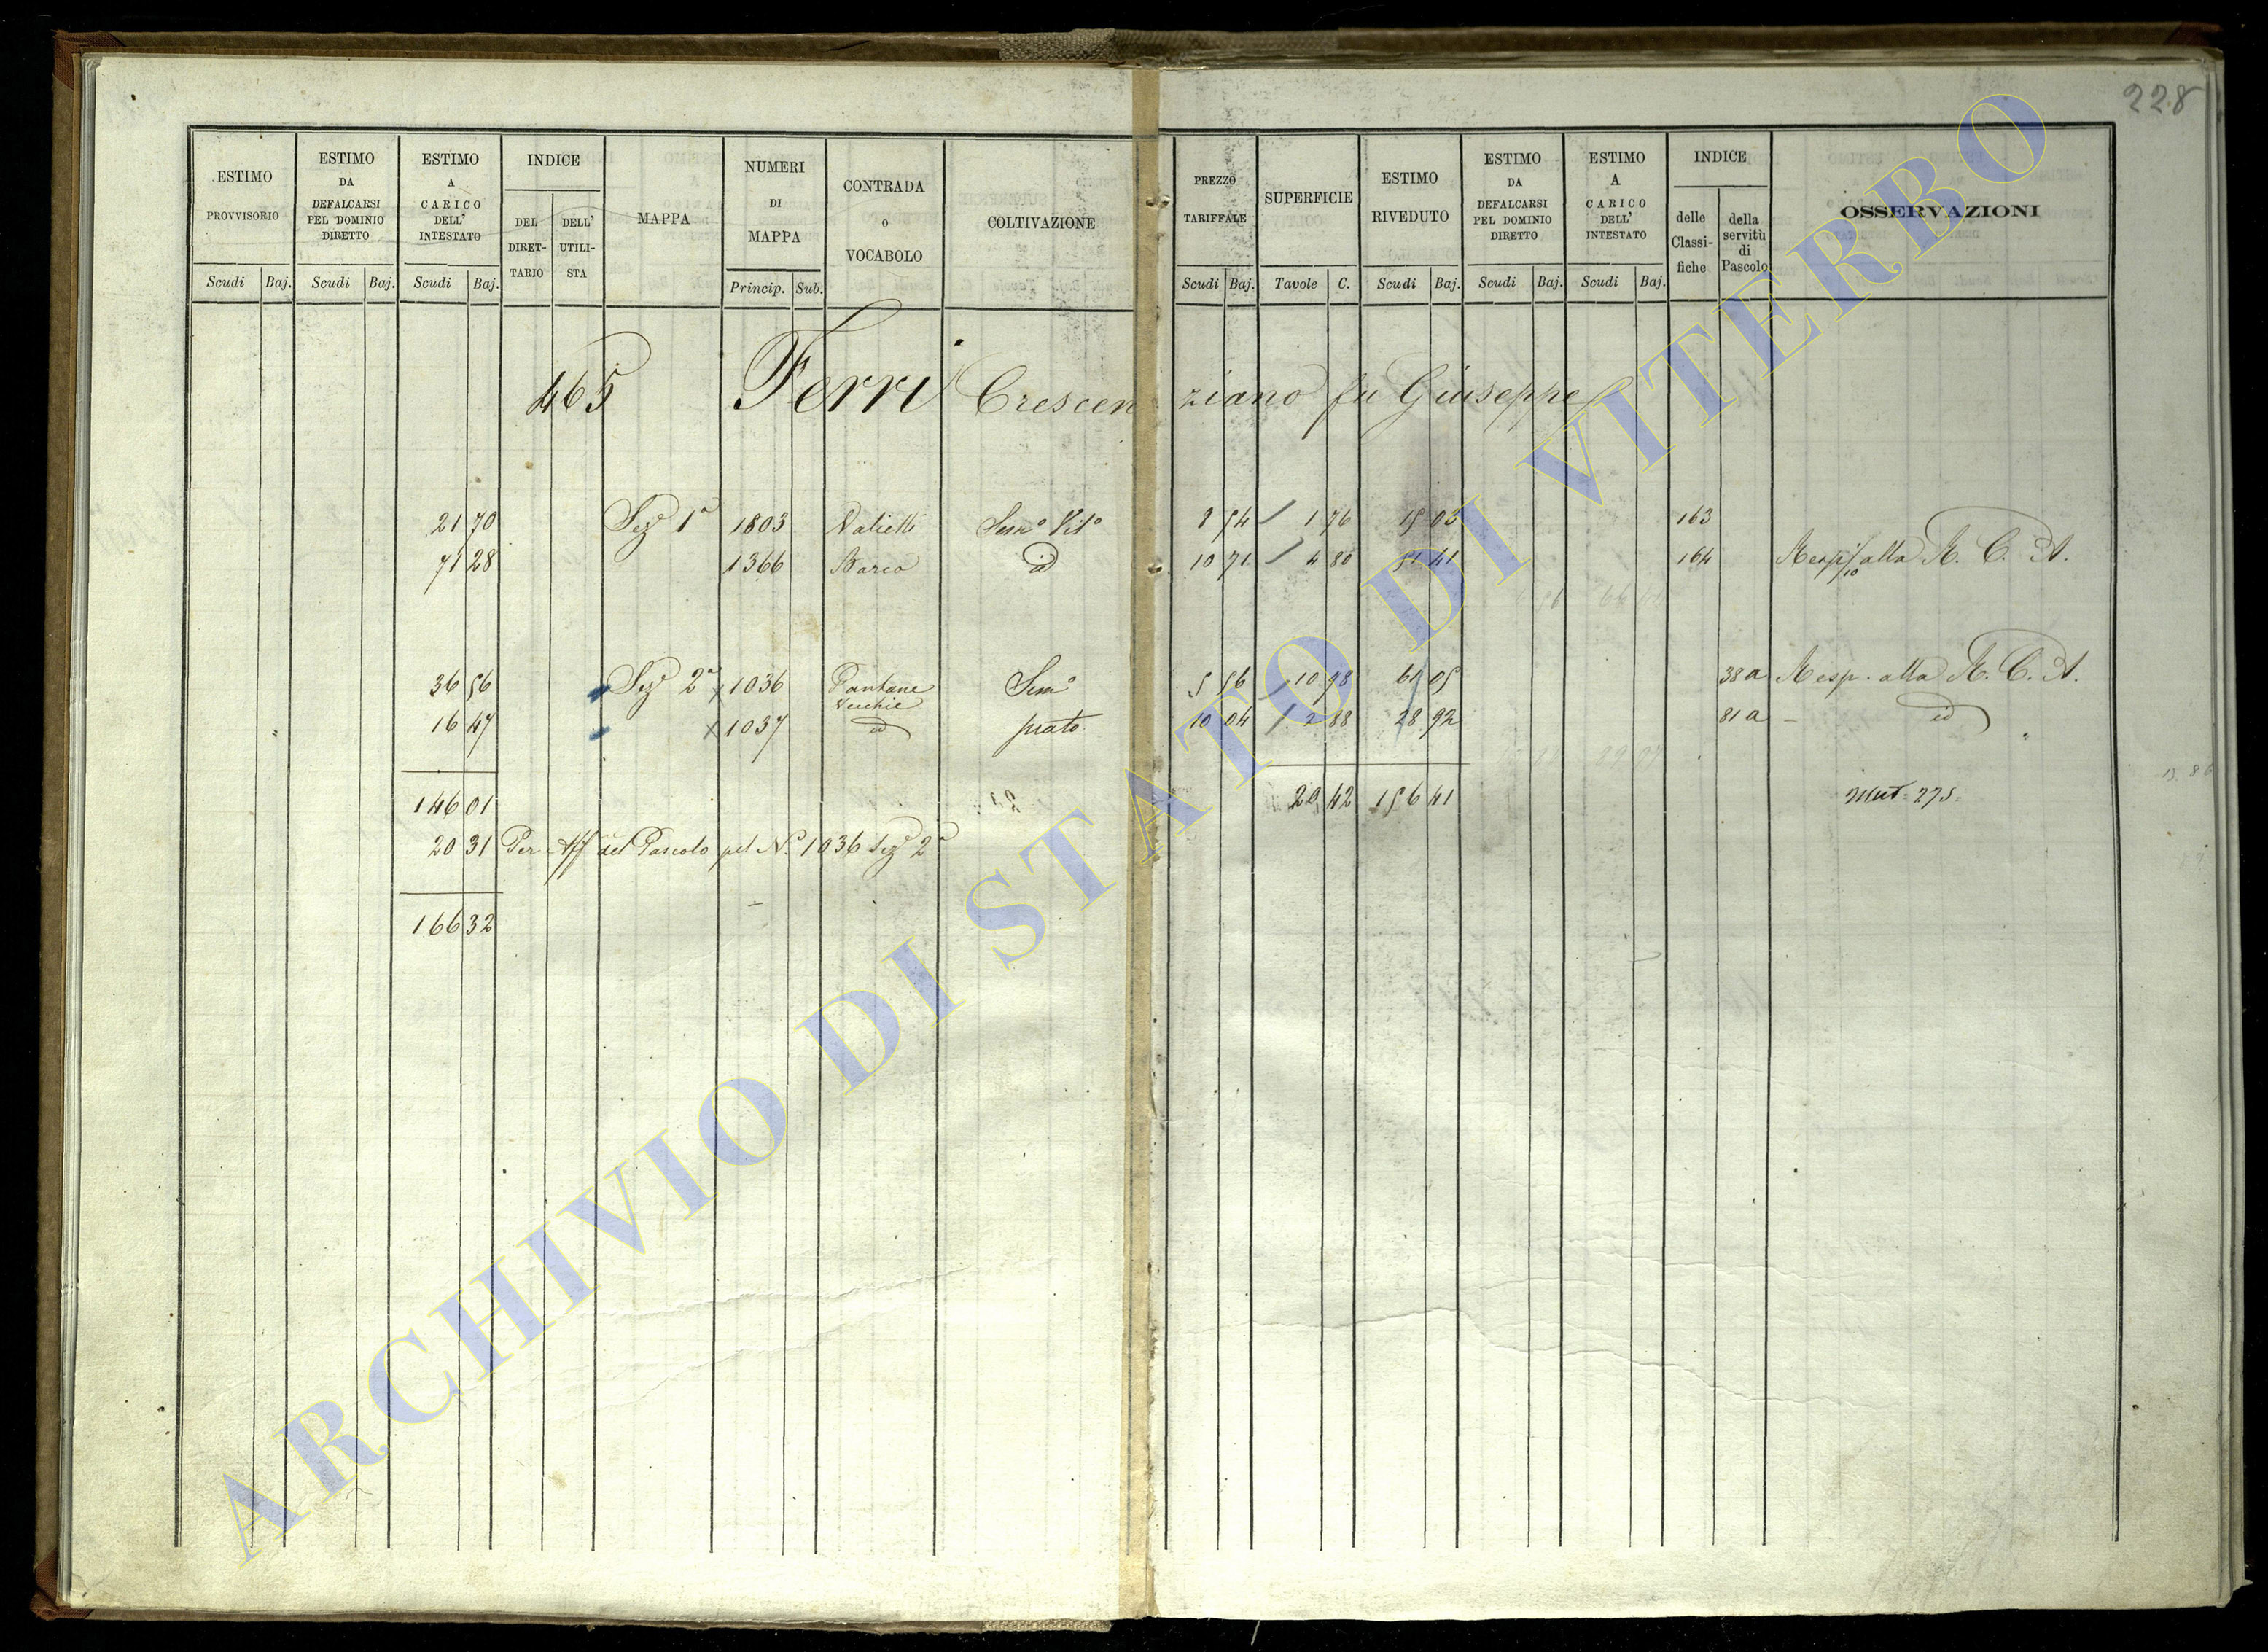 228
ESTIMO PROVVISORIO
ESTIMO DA DEFALCARSI PEL DOMINIO DIRETTO
ESTIMO A CARICO DELL' INTESTATO
INDICE
DEL DIRETTARIO
DELL' UTILISTA
MAPPA
NUMERI DI MAPPA
CONTRADA O VOCABOLO
COLTIVAZIONE
PREZZO TARIFFALE
SUPERFICIE
ESTIMO RIVEDUTO
ESTIMO DA DEFALCARSI PEL DOMINIO DIRETTO
ESTIMO A CARICO DELL' INTESTATO
INDICE
delle Classifiche
della servitù di Pascolo
OSSERVAZIONI
Scudi Baj. Scudi Baj. Scudi Baj. Princip. Sub. Scudi Baj. Tavole C. Scudi Baj. Scudi Baj. Scudi Baj.
465 Ferri Crescenziano fu Giuseppe
21 70 Sez.e 1a 1803 Sem.o Vit.o 8 54 1 76 15 03 163
71 28 1366 Barco id 10 71 4 80 51 41 164 Resp. 1/10 alla R. C. A.
36 56 Sez.e 2a 1036 Pantane Vecchie Sem.o 5 56 10 98 61 05 38 a Resp. alla R. C. A.
16 47 1037 id prato 10 04 2 88 28 92 81 a id
146 01 20 42 156 41 Mut. 275.
20 31 Per Aff del Pascolo pel N.o 1036 Sez.e 2a
166 32
ARCHIVIO DI STATO DI VITERBO